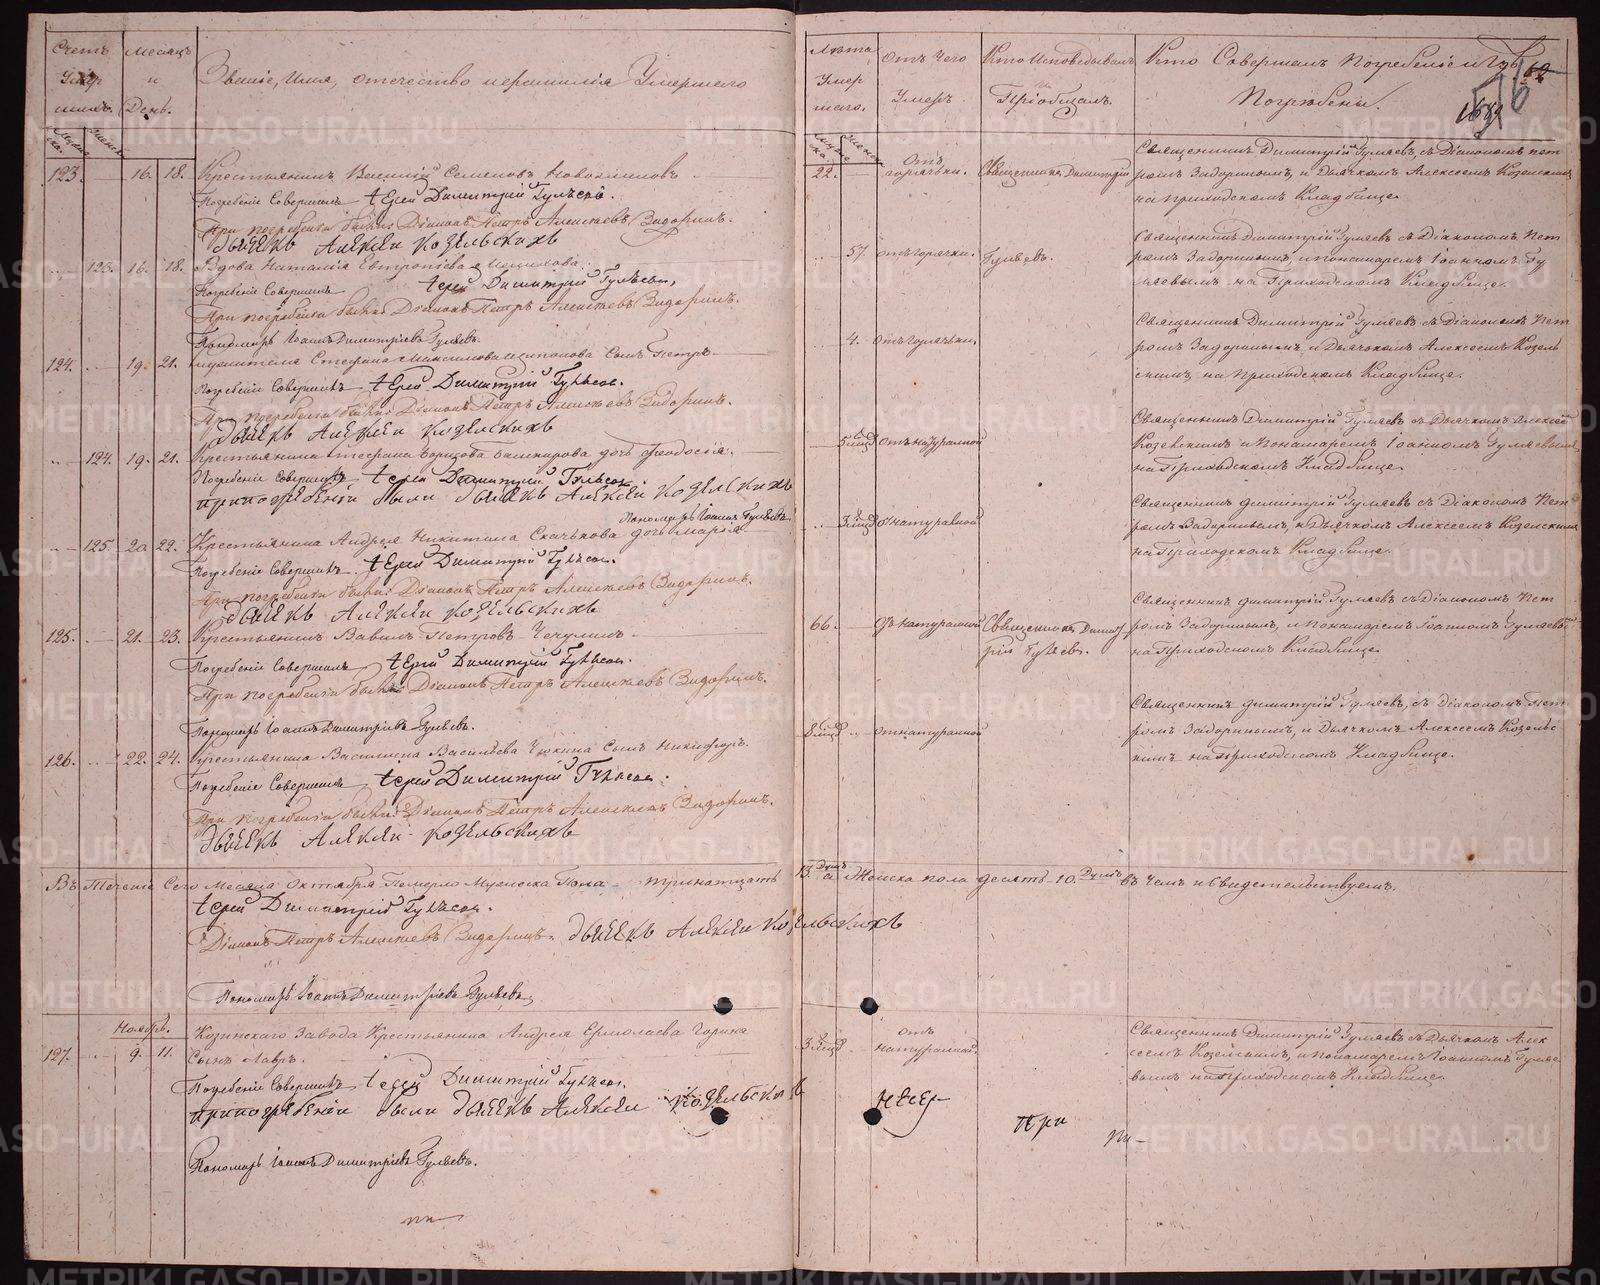 Счетъ
Умер
шихъ.
Мужеска.
Женска.
Месяцъ
и
День.
Званіе, Имя, отечество и фамилія Умершаго
123. 16. 18. Крестьянинъ Василій Семеновъ
Погребеніе Совершалъ Іерей Димитрій Гуляевъ.
При погребеніи былъ Діаконъ Петръ Алексѣевъ Задоринъ.
Дьячекъ Алексѣй Козельскихъ
123. 16. 18. Вдова Наталія Евтропіева
Погребеніе Совершалъ Іерей Димитрій Гуляевъ.
При погребеніи былъ Діаконъ Петръ Алексѣевъ Задоринъ.
Пономарь Іоаннъ Димитріевъ Гуляевъ.
124. 19. 21. Стефана Максимова Сынъ Петръ.
Погребеніе Совершалъ Іерей Димитрій Гуляевъ.
При погребеніи былъ Діаконъ Петръ Алексѣевъ Задоринъ.
Дьячекъ Алексѣй Козельскихъ
124. 19. 21. Крестьянина Стефана Башкирова дочь Феодосія.
Погребеніе Совершалъ Іерей Димитрій Гуляевъ.
при погребеніи были Дьячекъ Алексѣй Козельскихъ
Пономарь Іоаннъ Гуляевъ.
125. 20 22. Крестьянина Андрея Никитина Скачкова дочь Марія
Погребеніе Совершалъ Іерей Димитрій Гуляевъ.
При погребеніи былъ Діаконъ Петръ Алексѣевъ Задоринъ.
Дьячекъ Алексѣй Козельскихъ
125. 21. 23. Крестьянинъ Вавилъ Петровъ Чечулинъ.
Погребеніе Совершалъ Іерей Димитрій Гуляевъ.
При погребеніи былъ Діаконъ Петръ Алексѣевъ Задоринъ.
Пономарь Іоаннъ Димитріевъ Гуляевъ.
126. 22. 24. Крестьянина Василія Васильева Чюкина Сынъ Никифоръ.
Погребеніе Совершалъ Іерей Димитрій Гуляевъ.
При погребеніи былъ Діаконъ Петръ Алексѣевъ Задоринъ.
Дьячекъ Алексѣй Козельскихъ
Въ Теченіе Сего Месяца Октября Померло Мужеска Пола тринатцать 13. Душъ а Женска пола десять 10. Душъ въ Чемъ и Свидетельствуемъ.
Іерей Димитрій Гуляевъ.
Діаконъ Петръ Алексѣевъ Задоринъ. Дьячекъ Алексѣй Козельскихъ
Пономарь Іоаннъ Димитріевъ Гуляевъ
Ноябрь.
127. 9. 11. Козинскаго Завода Крестьянина Андрея Ермолаева Горина
Сынъ Лавръ.
Погребеніе Совершалъ Іерей Димитрій Гуляевъ.
при погребеніи были Дьячекъ Алексѣй Козельскихъ
Пономарь Іоаннъ Димитріевъ Гуляевъ.
Лѣта
Умер
шаго.
Отъ Чего
Умеръ
Кто Исповедывалъ
и Пріобщалъ.
Кто Совершалъ Погребеніе и Гдѣ
Погребены.
22. Отъ горячки. Священникъ Димитрій
Священникъ Димитрій Гуляевъ, съ Діакономъ Пет
ромъ Задоринымъ, и Дьячкомъ Алексеемъ Козельскимъ
на Приходскомъ Кладбище.
57. отъ горячки. Гуляевъ.
Священникъ Димитрій Гуляевъ съ Діакономъ Пет
ромъ Задоринымъ, и понамаремъ Іоанномъ Гу
ляевымъ на Приходскомъ Кладбище.
4. отъ Горячки.
Священникъ Димитрій Гуляевъ съ Діакономъ Пет
ромъ Задоринымъ, и Дьячкомъ Алексеемъ Козель
скимъ, на Приходскомъ Кладбище.
5 отъ натуральной
Священникъ Димитрій Гуляевъ съ Дьячкомъ Алексее
Козельскимъ и Понамаремъ Іоанномъ Гуляевымъ
на Приходскомъ Кладбище.
3 натуральной
Священникъ Димитрій Гуляевъ съ Діакономъ Пет
ромъ Задоринымъ, и Дьячкомъ Алексеемъ Козельскимъ
на Приходскомъ Кладбище.
66. натуральной Священникъ Димит
рій Гуляевъ.
Священникъ Димитрій Гуляевъ съ Діакономъ Пет
ромъ Задоринымъ, и понамаремъ Іоанномъ Гуляевы
на Приходскомъ Кладбище.
8 отъ натуральной
Священникъ Димитрій Гуляевъ, съ Діакономъ Пет
ромъ Задоринымъ, и Дьячкомъ Алексеемъ Козельс
кимъ на Приходскомъ Кладбище.
3 отъ
натуральной.
Священникъ Димитрій Гуляевъ съ Дьячкомъ Алек
сеемъ Козельскимъ, и понамаремъ Іоанномъ Гуляе
вымъ на Приходскомъ Кладбище.
при
METRIKI.GASO-URAL.RU